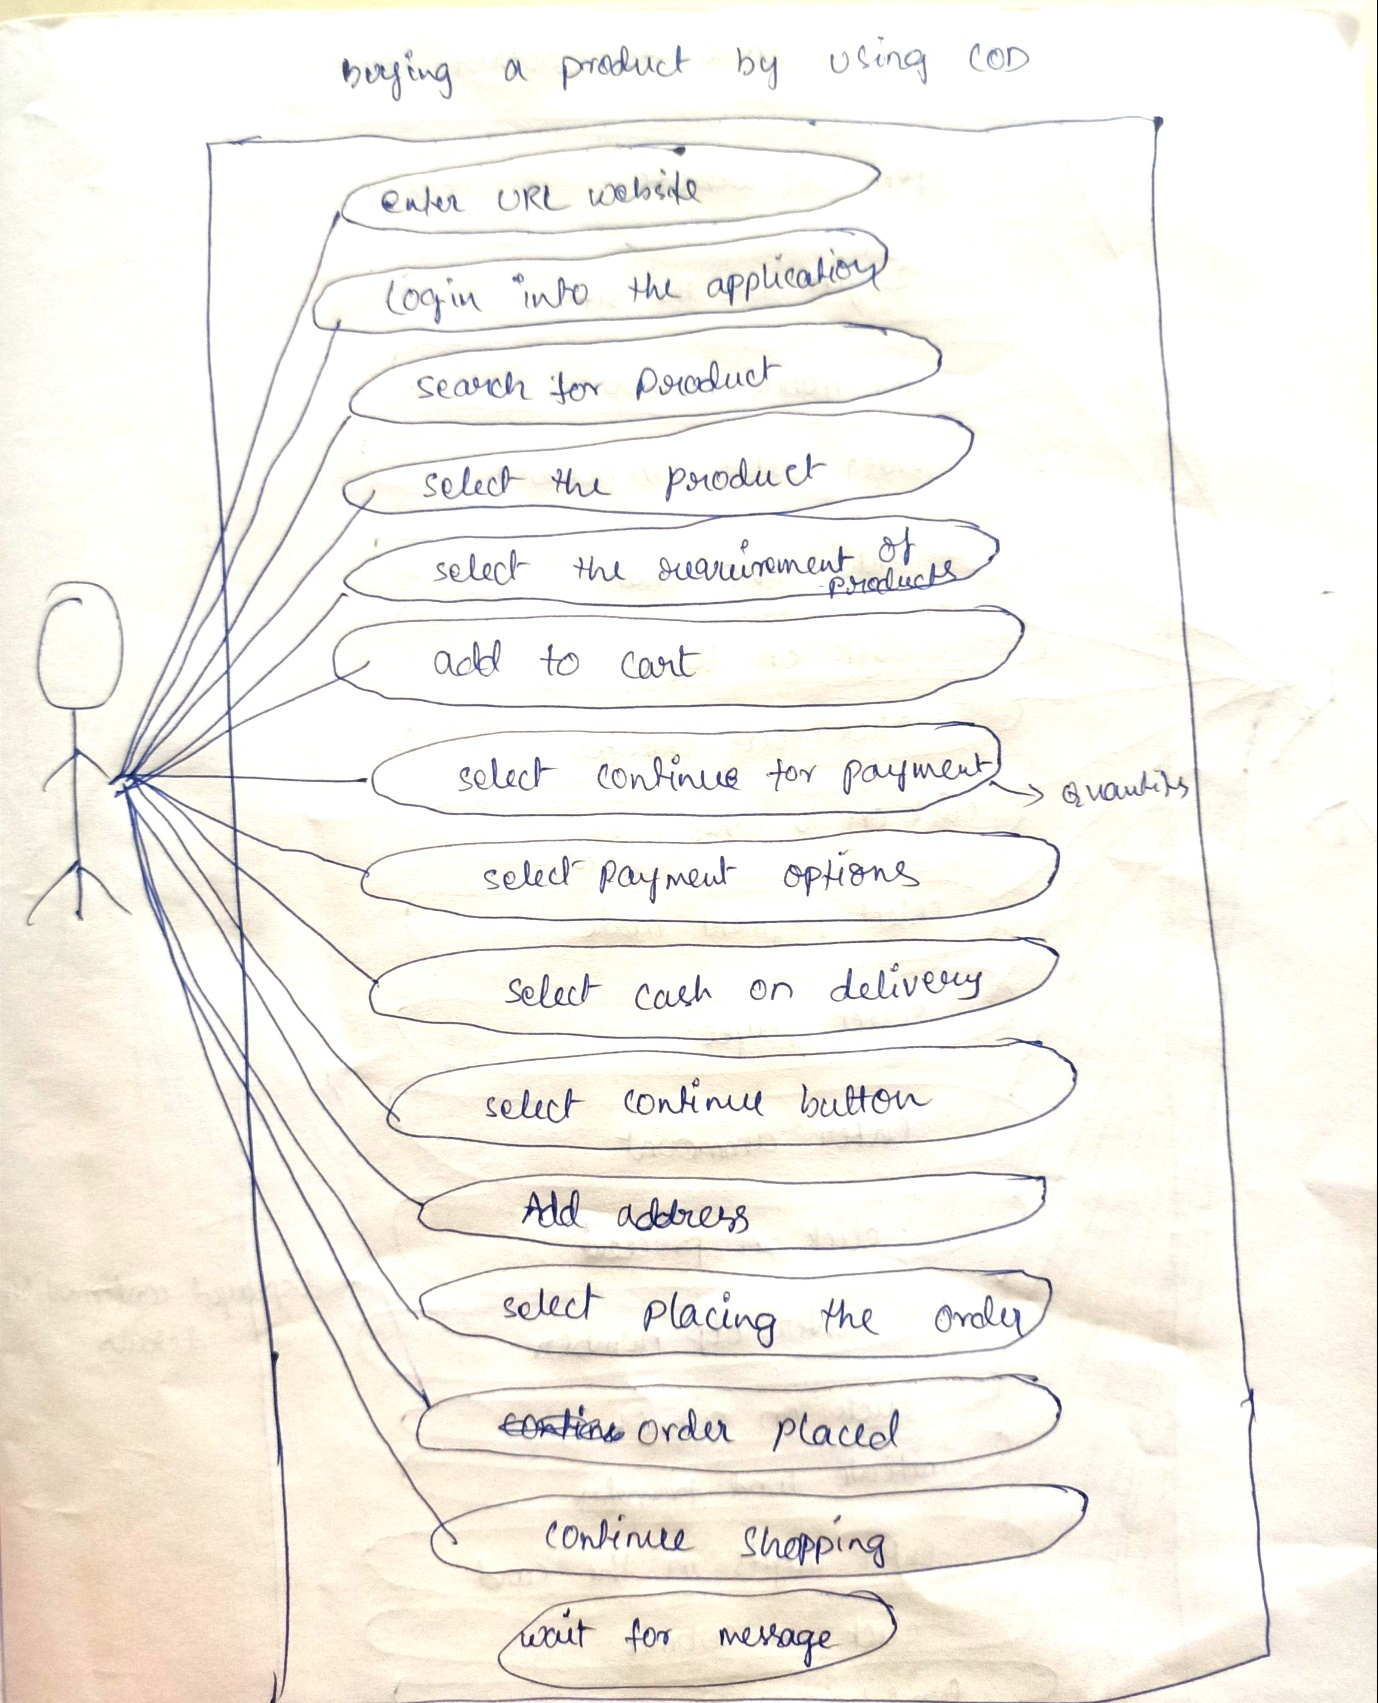 buying a product by using COD
enter URL website
login into the application
search for product
select the product
select the requirement of
products
add to cart
select continue for payment
select payment options
select cash on delivery
select continue button
Add address
select placing the order
order placed
continue shopping
wait for message